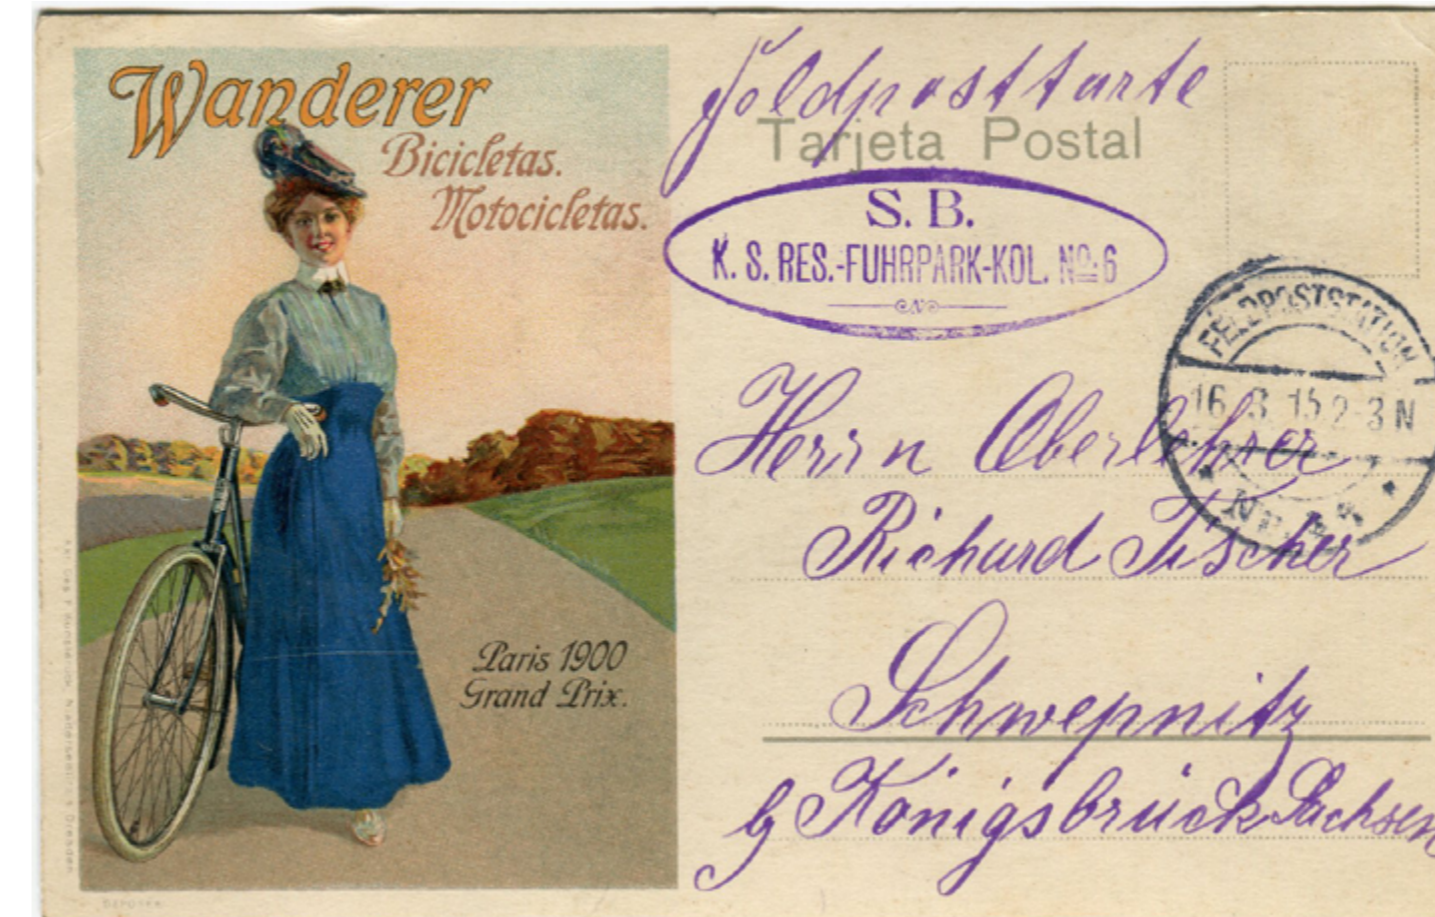 Wanderer
Bicicletas.
Motocicletas.
Paris 1900
Grand Prix.
Feldpostkarte
Tarjeta Postal
S. B.
K. S. RES.-FUHRPARK-KOL. No. 6
FELDPOSTSTATION
16. 3. 15 2-3 N
Herrn Oberlehrer
Richard Fischer
Schwepnitz
b/ Königsbrück Sachsen